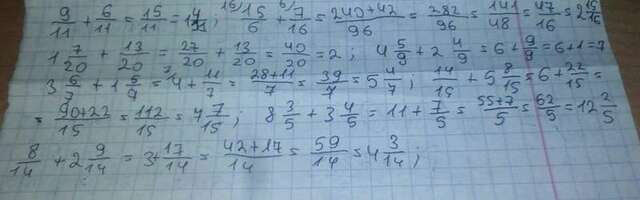 9/11 + 6/11 = 15/11 = 1 4/11; 15/6 + 7/16 = 240+42/96 = 282/96 = 141/48 = 47/16 = 2 15/16
1 7/20 + 13/20 = 27/20 + 13/20 = 40/20 = 2; 4 5/9 + 2 4/9 = 6 + 9/9 = 6+1 = 7
3 6/7 + 1 5/7 = 4 + 11/7 = 28+11/7 = 39/7 = 5 4/7; 14/15 + 5 8/15 = 6 + 22/15 =
= 90+22/15 = 112/15 = 4 7/15; 8 3/5 + 3 4/5 = 11 + 7/5 = 55+7/5 = 62/5 = 12 2/5
8/14 + 2 9/14 = 3 + 17/14 = 42+17/14 = 59/14 = 4 3/14;